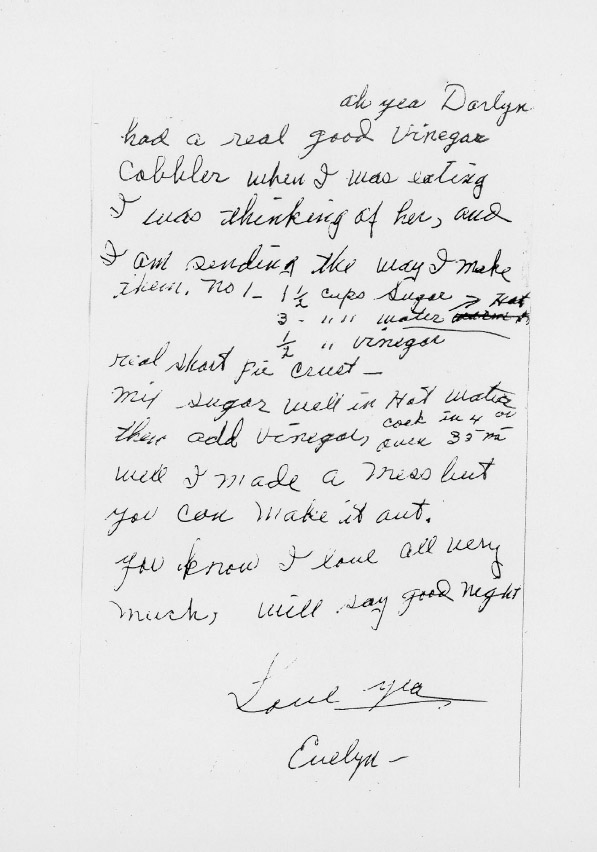 ah yea Darlyn
had a real good Vinegar
Cobbler when I was eating
I was thinking of her, and
I am sending the way I make
them. No 1 - 1 1/2 cups Sugar > Hot
3 - " " water
1/2 " vinegar
real short Pie Crust -
Mix sugar well in Hot water
then add Vinegar, cook in
oven 35
well I made a mess but
you can make it out.
you know I love all very
much, will say good night
Love yea
Evelyn -